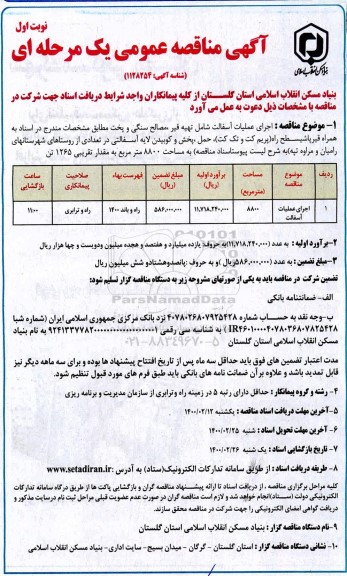 نوبت اول
آگهی مناقصه عمومی یک مرحله ای
(شناسه آگهی: ۱۱۲۸۲۵۴)
بنیاد مسکن انقلاب اسلامی استان گلستان از کلیه پیمانکاران واجد شرایط دریافت اسناد جهت شرکت در
مناقصه با مشخصات ذیل دعوت به عمل می آورد
۱- موضوع مناقصه: اجرای عملیات آسفالت شامل تهیه قیر، مصالح سنگی و پخت مطابق مشخصات مندرج در اسناد به
همراه قیرپاشی سطح راه (پریم کت و تک کت)، حمل، پخش و کوبیدن لایه آسفالتی در تعدادی از روستاهای شهرستانهای
رامیان و مراوه تپه (به شرح لیست پیوست اسناد مناقصه) به مساحت ۸۸۰۰ متر مربع به مقدار تقریبی ۱۲۶۵ تن
ردیف موضوع مناقصه مساحت (مترمربع) برآورد اولیه (ریال) مبلغ تضمین (ریال) فهرست بهاء صلاحیت پیمانکاری ساعت بازگشایی
۱ اجرای عملیات آسفالت ۸۸۰۰ ۱۱,۷۱۸,۲۴۰,۰۰۰ ۵۸۶,۰۰۰,۰۰۰ راه و باند ۱۴۰۰ راه و ترابری ۱۱:۰۰
۲- برآورد اولیه: به عدد (۱۱,۷۱۸,۲۴۰,۰۰۰) به حروف: یازده میلیارد و هفتصد و هجده میلیون و دویست و چها هزار ریال
۳- مبلغ تضمین: به عدد (۵۸۶,۰۰۰,۰۰۰ ریال) و به حروف: پانصد و هشتاد و شش میلیون ریال
تضمین شرکت در مناقصه باید به یکی از صورتهای مشروحه زیر به دستگاه مناقصه گزار تسلیم شود:
الف- ضمانتنامه بانکی
ب- وجه نقد به حساب شماره ۴۰۷۸۰۲۶۸۰۷۹۲۵۴۲۸ نزد بانک مرکزی جمهوری اسلامی ایران (شماره شبا
به نام بنیاد
مسکن انقلاب اسلامی استان گلستان
مدت اعتبار تضمین های فوق باید حداقل سه ماه پس از تاریخ افتتاح پیشنهاد ها بوده و برای سه ماهه دیگر نیز
قابل تمدید باشد و علاوه بر آن ضمانت نامه های بانکی باید طبق فرم های مورد قبول تنظیم شود.
۴- رشته و گروه پیمانکار: حداقل دارای رتبه ۵ در زمینه راه و ترابری از سازمان مدیریت و برنامه ریزی
۵- آخرین مهلت دریافت اسناد مناقصه: یکشنبه ۱۴۰۰/۰۲/۱۲
۶- آخرین مهلت تحویل اسناد: شنبه ۱۴۰۰/۰۲/۲۵
۷- تاریخ بازگشایی اسناد: یک شنبه ۱۴۰۰/۰۲/۲۶
۸- طریقه دریافت اسناد: از طریق سامانه تدارکات الکترونیک (ستاد) به آدرس: www.setadiran.ir
کلیه مراحل برگزاری مناقصه، از دریافت اسناد تا ارائه پیشنهاد مناقصه گران و بازگشایی پاکت ها از طریق درگاه سامانه تدارکات
الکترونیکی دولت (ستاد) انجام خواهد شد و لازم است مناقصه گران در صورت عدم عضویت قبلی مراحل ثبت نام در سایت مذکور و
دریافت گواهی امضای الکترونیکی را جهت شرکت در مناقصه محقق سازند.
۹- نام دستگاه مناقصه گزار: بنیاد مسکن انقلاب اسلامی استان گلستان
۱۰- نشانی دستگاه مناقصه گزار: استان گلستان - گرگان - میدان بسیج - سایت اداری - بنیاد مسکن انقلاب اسلامی